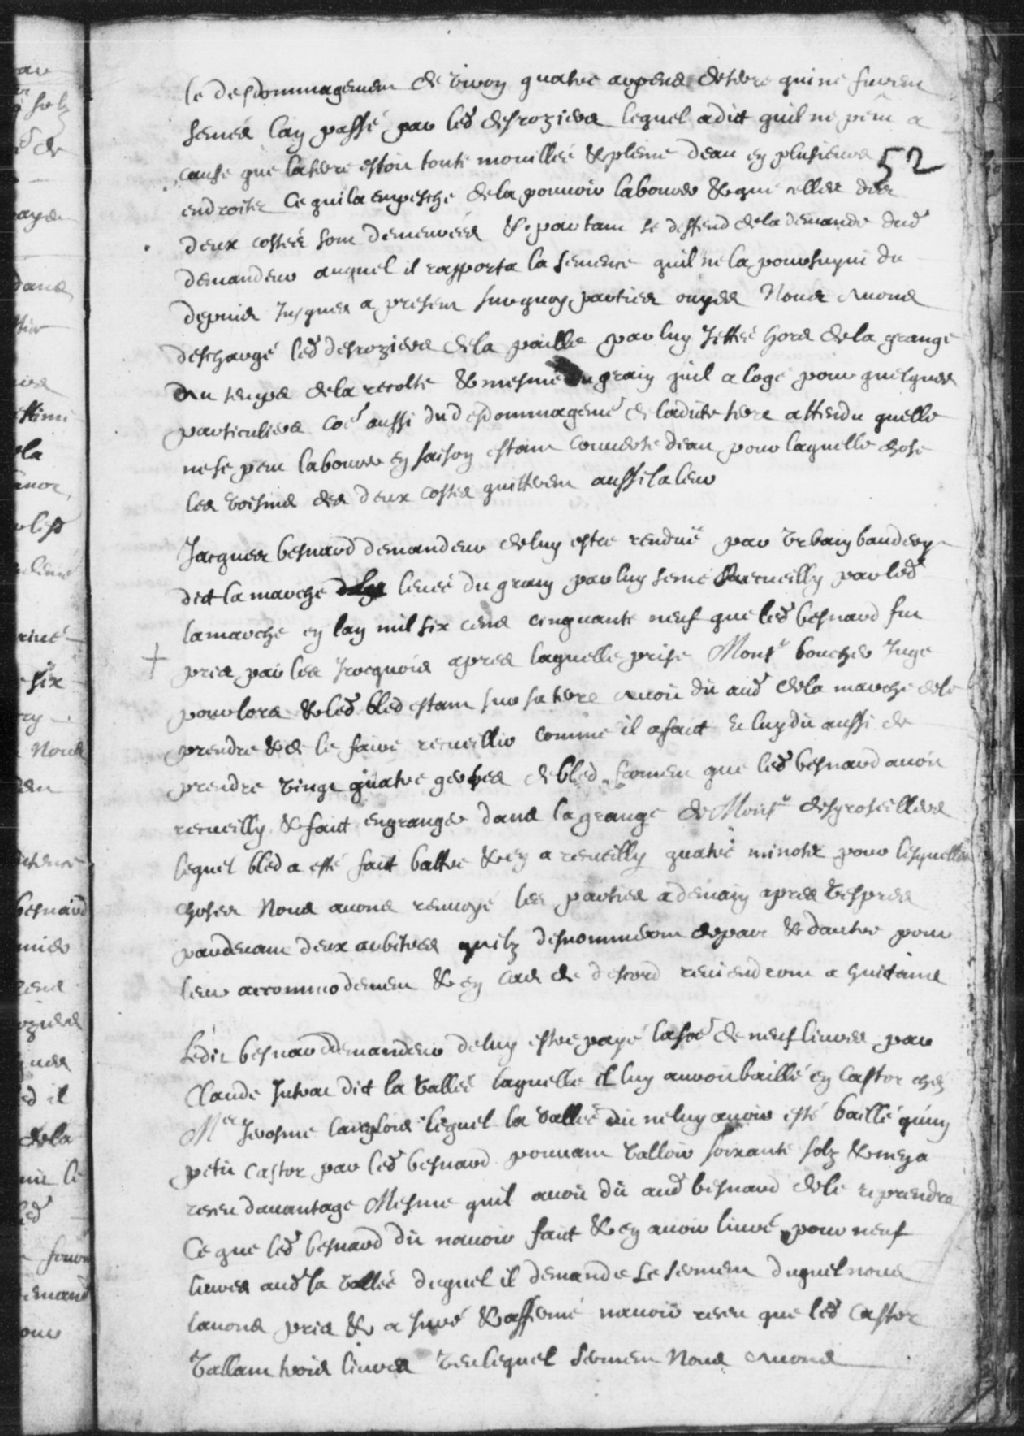 le desdommagement de viron quatre arpens de terre qui ne furent
semés lan passé par led desroziers lequel a dict quil ne peut a
cause que la terre estoit toute mouillée & pleine deau en plusieurs
52
endroits Ce qui la empesché de la pouvoir labourer & que celles des
deux costés sont demeurées & partant se deffend de la demande dud
demandeur auquel il rapporta la semence quil ne la poursuyvi du
depuis Jusques a present sur quoy parties ouyes Nous avons
deschargé led desroziers de la paille par luy Jettée hors de la grange
au temps de la recolte & mesme du grain quil a logé pour quelques
particuliers coe aussi du desdommagemt de ladite terre attendu quelle
ne se peut labourer en saison estant couverte deau pour laquelle chose
les voisins des deux costés quitterent aussi la leur
Jacques besnard demandeur de luy estre rendue par Urbain baudery
dict la marche levée du grain par luy semé & recueilly par led
la marche en lan mil six cens cinquante neuf que led besnard fut
pris par les Irocquois apres laquelle prise Monsr boucher Juge
pour lors & led bled estant sur sa terre avoit dit aud de la marche de le
prendre & de le faire recueillir comme il a fait Et luy dit aussi de
prendre vingt quatre gerbes de bled froment que led besnard avoit
recueilly & fait engranger dans la grange de Monsr desgroseilliers
lequel bled a esté fait battre & en a recueilly quatre minots pour lesquelles
choses Nous avons renvoyé les parties a demain apres Vespres
pardevant deux arbitres quilz desnommeront de part & dautre pour
leur accommodement & en cas de descord reviendront a huitaine
Ledit besnard demandeur de luy estre payé la soe de neuf livres par
Claude Jutrat dict la Vallée laquelle il luy auroit baillé en Castor chez
Mre Jerosme langlois lequel la Vallée dit ne luy avoir esté baillé quun
petit castor par led besnard pouvant valloir soixante solz & ne pas
receu davantage Mesme quil avoit dit aud besnard de le reprendre
Ce que led besnard dit navoir fait & en avoir livré pour neuf
livres aud la Vallée duquel il demande Le serment duquel nous
lavons pris & a juré & affermé navoir receu que led Castor
Vallant trois livres Veu lequel serment Nous avons